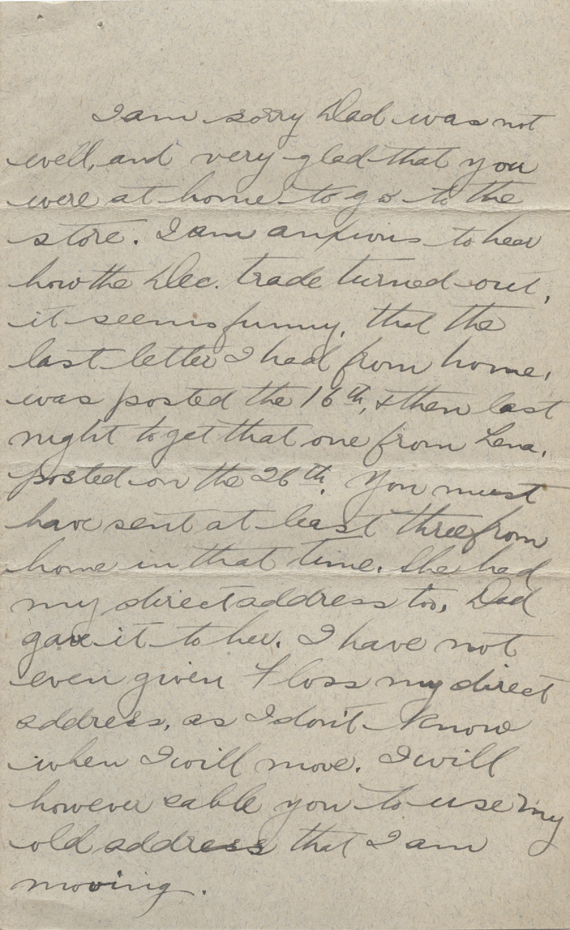 I am sorry Dad was not
well, and very glad that you
were at home to go to the
store. I am anxious to hear
how the Dec. trade turned out,
it seems funny, that the
last letter I had from home,
was posted the 16th, & then last
night to get that one from Lena,
posted on the 26th. You must
have sent at least three from
home in that time. She had
my direct address too, Dad
gave it to her. I have not
even given Floss my direct
address, as I don't know
when I will move. I will
however cable you to use my
old address that I am
moving.